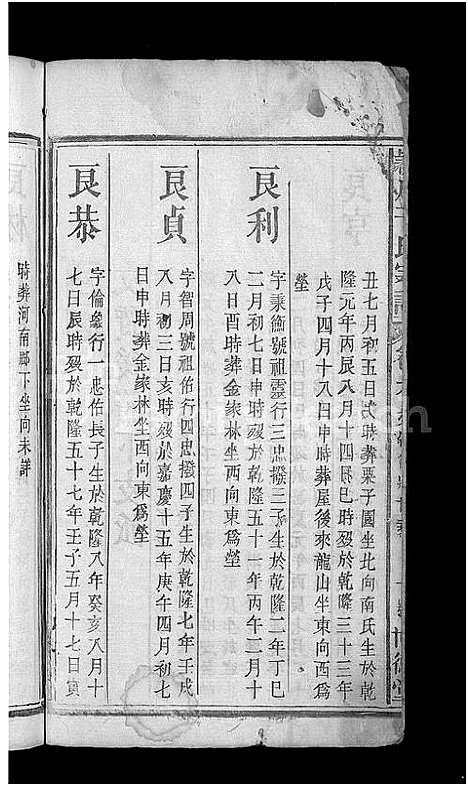 丑七月初五日戌時葬栗子園坐北向南氏生於乾
隆元年丙辰八月十四日巳時歿於乾隆三十三年
戊子四月十八日申時葬屋後來龍山坐東向西爲
塋
良利
字秉衡號祖靈行三忠撥三子生於乾隆二年丁巳
二月初七日申時歿於乾隆五十一年丙午三月十
八日酉時葬金家林坐西向東爲塋
良貞
字智周號祖佑行四忠撥四子生於乾隆七年壬戌
八月初三日亥時歿於嘉慶十五年庚午四月初七
日申時葬金家林坐西向東爲塋
良恭
字倫彝行一忠佑長子生於乾隆八年癸亥八月十
七日辰時歿於乾隆五十七年壬子五月十七日寅
時葬河南鄉下坐向未詳